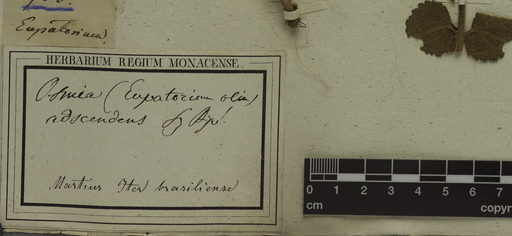 Eupatorium
HERBARIUM REGIUM MONACENSE.
Osmia (Eupatorium olim)
adscendens Sz Bip!
Martius Iter brasiliense
0 1 2 3 4 5 6 7
cm
copyr